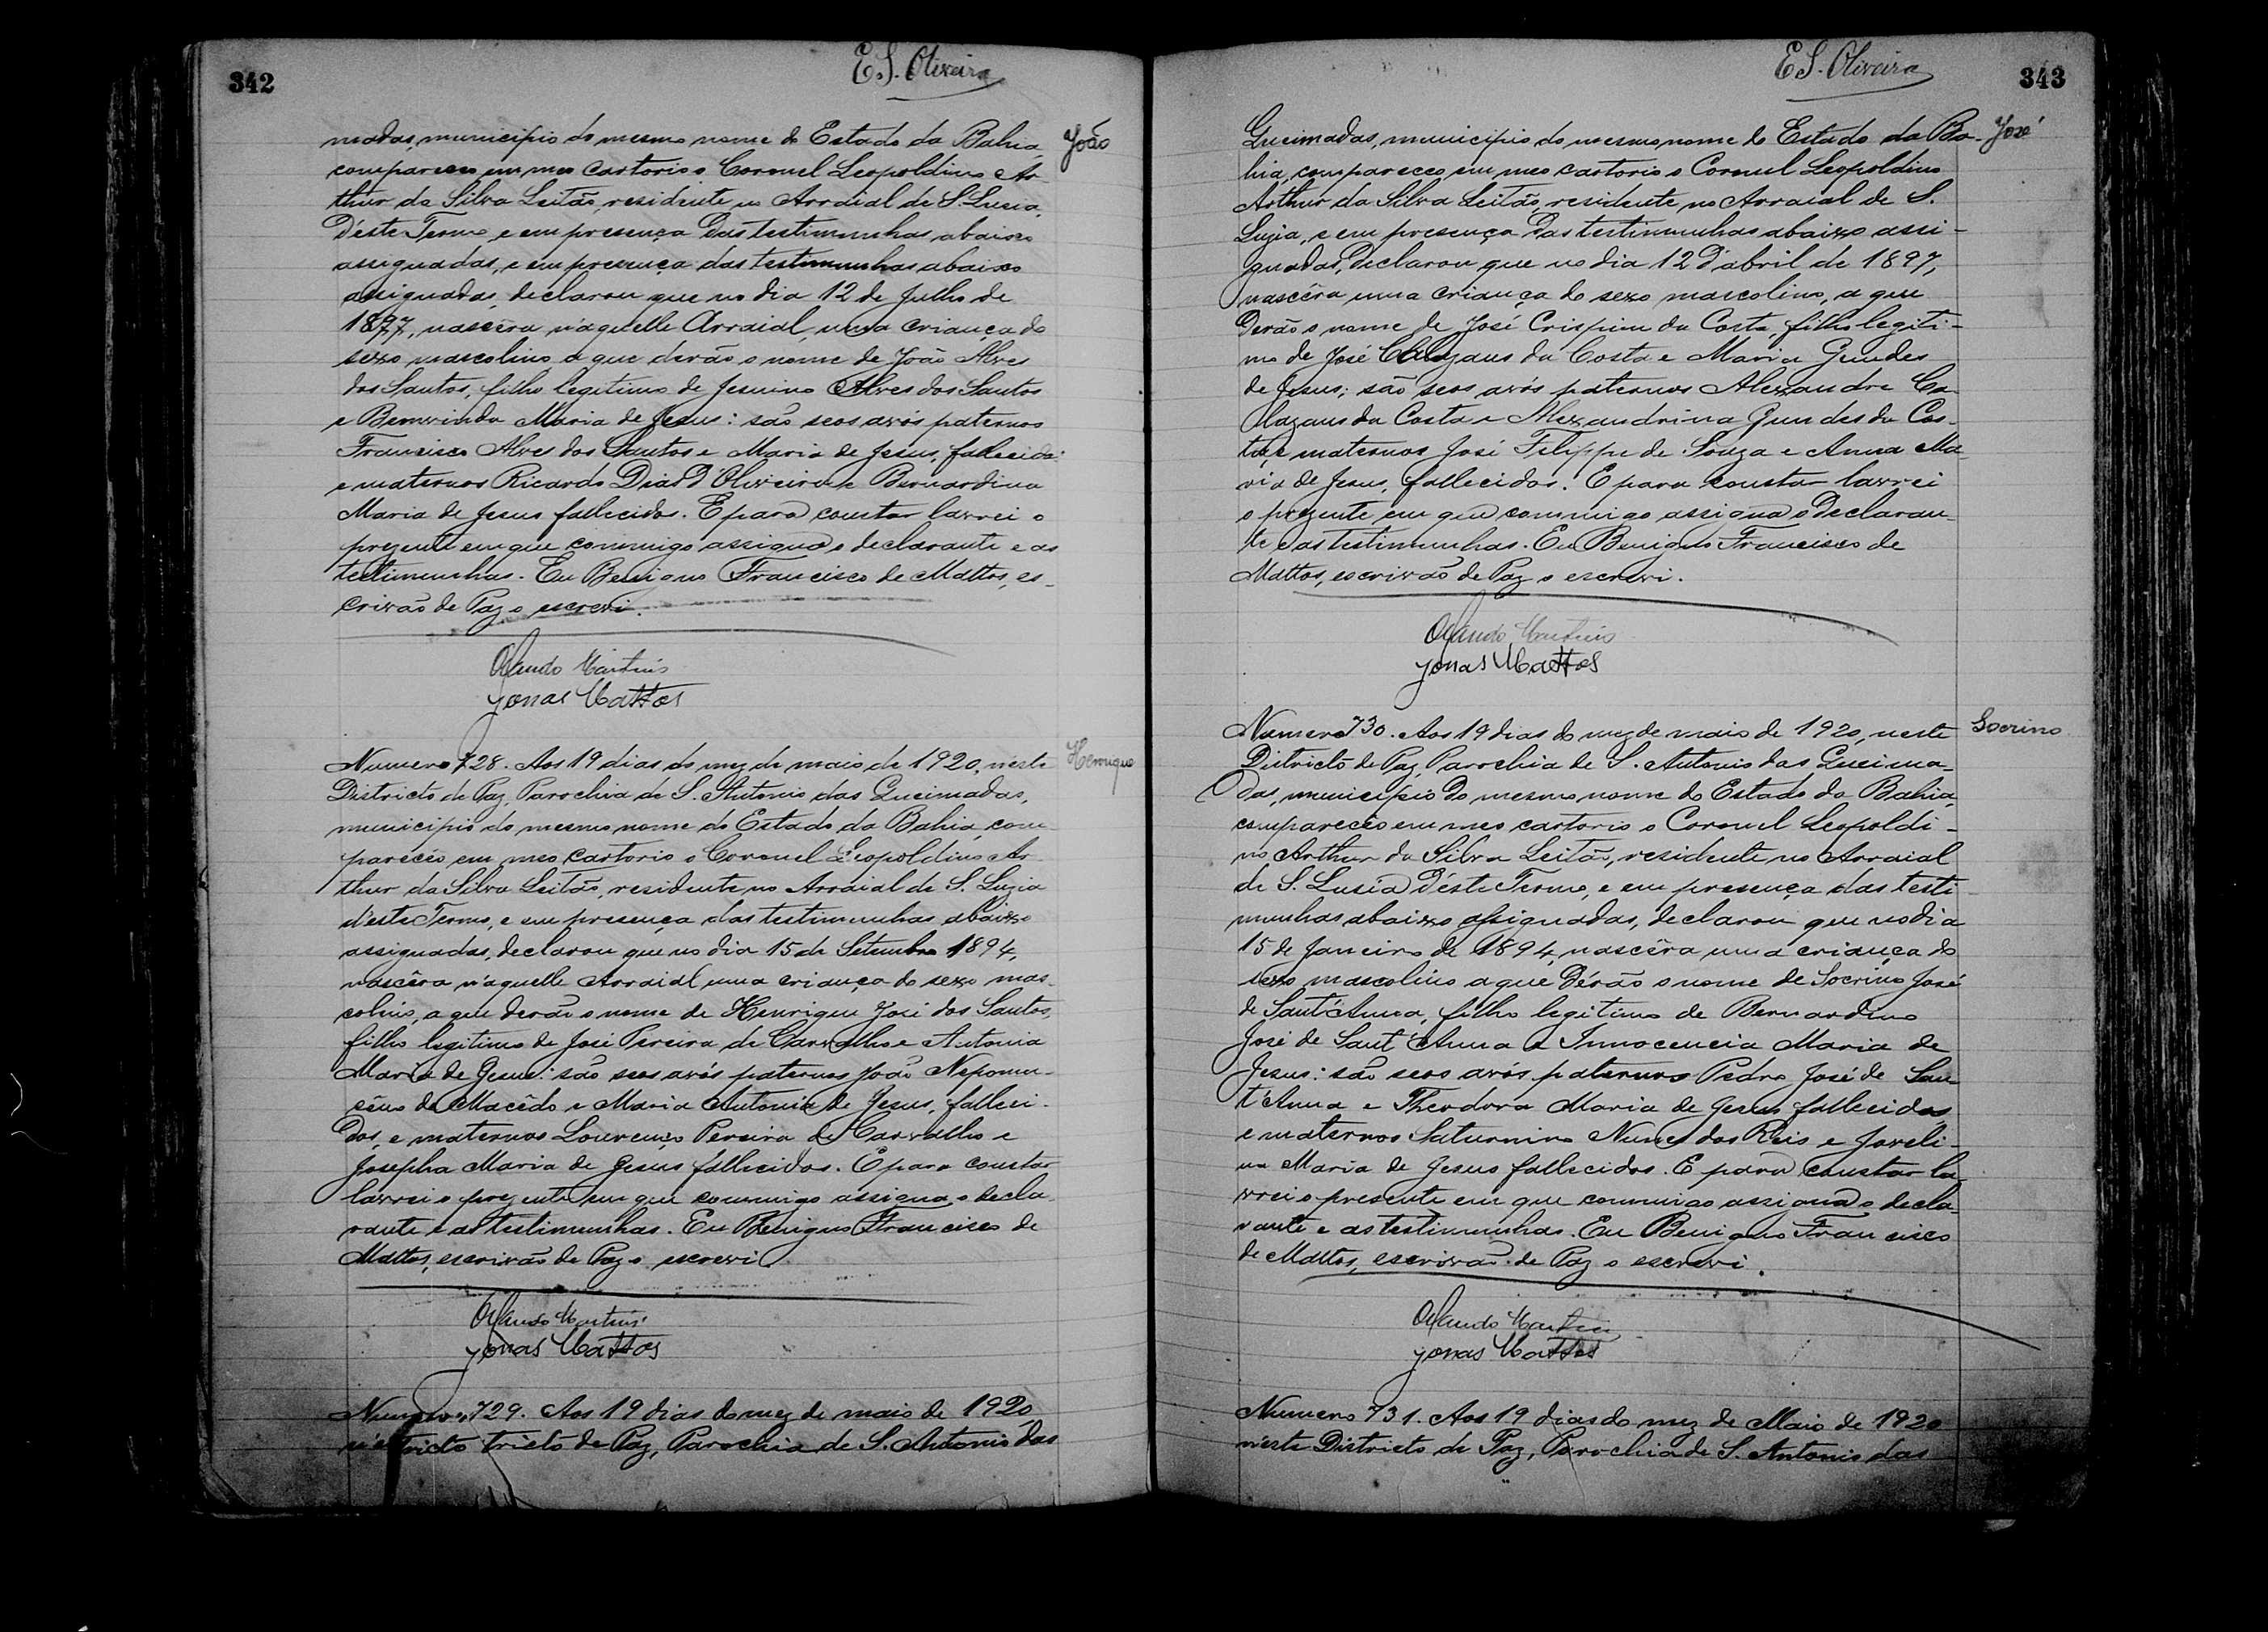 342
E. S. Oliveira
João
madas, municipio do mesmo nome do Estado da Bahia,
compareceo em meo cartorio o Coronel Leopoldino Ar-
thur da Silva Leitão, residente no Arraial de S. Lusia,
d'éste Termo, e em presença das testimunhas abaixo
assignadas, e em presença das testimunhas abaixo
assignadas, declarou que no dia 12 de Julho de
1897, nascêra n'aquelle Arraial, uma criança do
sexo mascolino a que derão o nome de João Alves
dos Santos, filho legitimo de Jesuino Alves dos Santos
e Bemvinda Maria de Jesus: são seos avós paternos
Francisco Alves dos Santos e Maria de Jesus, fallecidos
e maternos Ricardo Dias d'Oliveira e Bernardina
Maria de Jesus fallecidos. E para constar lavrei o
prezente em que commigo assigna o declarante e as
testimunhas. Eu Benigno Francisco de Mattos, es-
crivão de Paz o escrevi.
Orlando Martins
Jonas Mattos
Henrique
Numero 728. Aos 19 dias do mez de maio de 1920, n'este
Districto de Paz, Parochia de S. Antonio das Queimadas,
municipio do mesmo nome do Estado da Bahia, com-
pareceo em meo cartorio o Coronel Leopoldino Ar-
thur da Silva Leitão, residente no Arraial de S. Luzia
d'este Termo, e em presença das testimunhas abaixo
assignadas, declarou que no dia 15 de Setembro 1894,
nascêra n'aquelle Arraial uma criança do sexo mas-
colino, a que derão o nome de Henrique José dos Santos,
filho legitimo de José Pereira de Carvalho e Antonia
Maria de Jesus: são seos avós paternos João Nepomu-
cêno de Macêdo e Maria Antonia de Jesus, falleci-
dos, e maternos Lourenço Pereira de Carvalho e
Josepha Maria de Jesus fallecidos. E para constar
lavrei o prezente em que commigo assigna o decla-
rante e as testimunhas. Eu Benigno Francisco de
Mattos, escrivão de Paz o escrevi
Orlando Martins
Jonas Mattos
Numero 729. Aos 19 dias do mez de maio de 1920,
tricto de Paz, Parochia de S. Antonio das
343
E. S. Oliveira
José
Queimadas, municipio do mesmo nome do Estado da Ba-
hia, compareceo em meo cartorio o Coronel Leopoldino
Arthur da Silva Leitão, residente no Arraial de S.
Luzia, e em presença das testimunhas abaixo assi-
gnadas, declarou que no dia 12 d'abril de 1897,
nascêra uma criança do sexo mascolino, a que
derão o nome de José Crispim da Costa, filho legiti-
mo de José Calazans da Costa e Maria Guedes
de Jesus; são seos avós paternos Alexandre Ca-
lazans da Costa e Alexandrina Guedes da Cos-
ta, e maternos José Filippe de Souza e Anna Ma-
ria de Jesus, fallecidos. E para constar lavrei
o prezente em que commigo assigna o declaran-
te e as testimunhas. Eu Benigno Francisco de
Mattos, escrivão de Paz o escrevi.
Orlando Martins
Jonas Mattos
Socrino
Numero 730. Aos 19 dias do mez de maio de 1920, neste
Districto de Paz, Parochia de S. Antonio das Queima-
das, municipio do mesmo nome do Estado da Bahia,
compareceo em meo cartorio o Coronel Leopoldi-
no Arthur da Silva Leitão, residente no Arraial
de S. Lusia d'éste Termo, e em presença das testi
munhas abaixo assignadas, declarou que no dia
15 de Janeiro de 1894, nascêra uma criança do
sexo mascolino a que dérão o nome de Socrino José
de Sant'Anna, filho legitimo de Bernardino
José de Sant'Anna e Innocencia Maria de
Jesus: são seos avós paternos Pedro José de San-
t'Anna e Theodora Maria de Jesus fallecidos
e maternos Saturnino Nunes dos Reis e Joveli-
na Maria de Jesus fallecidos. E para constar la-
vrei o presente em que commigo assigna o decla-
rante e as testimunhas. Eu Benigno Francisco
de Mattos, escrivão de Paz o escrevi.
Orlando Martins
Jonas Mattos
Numero 731. Aos 19 dias do mez de Maio de 1920
n'este Districto de Paz, Parochia de S. Antonio das